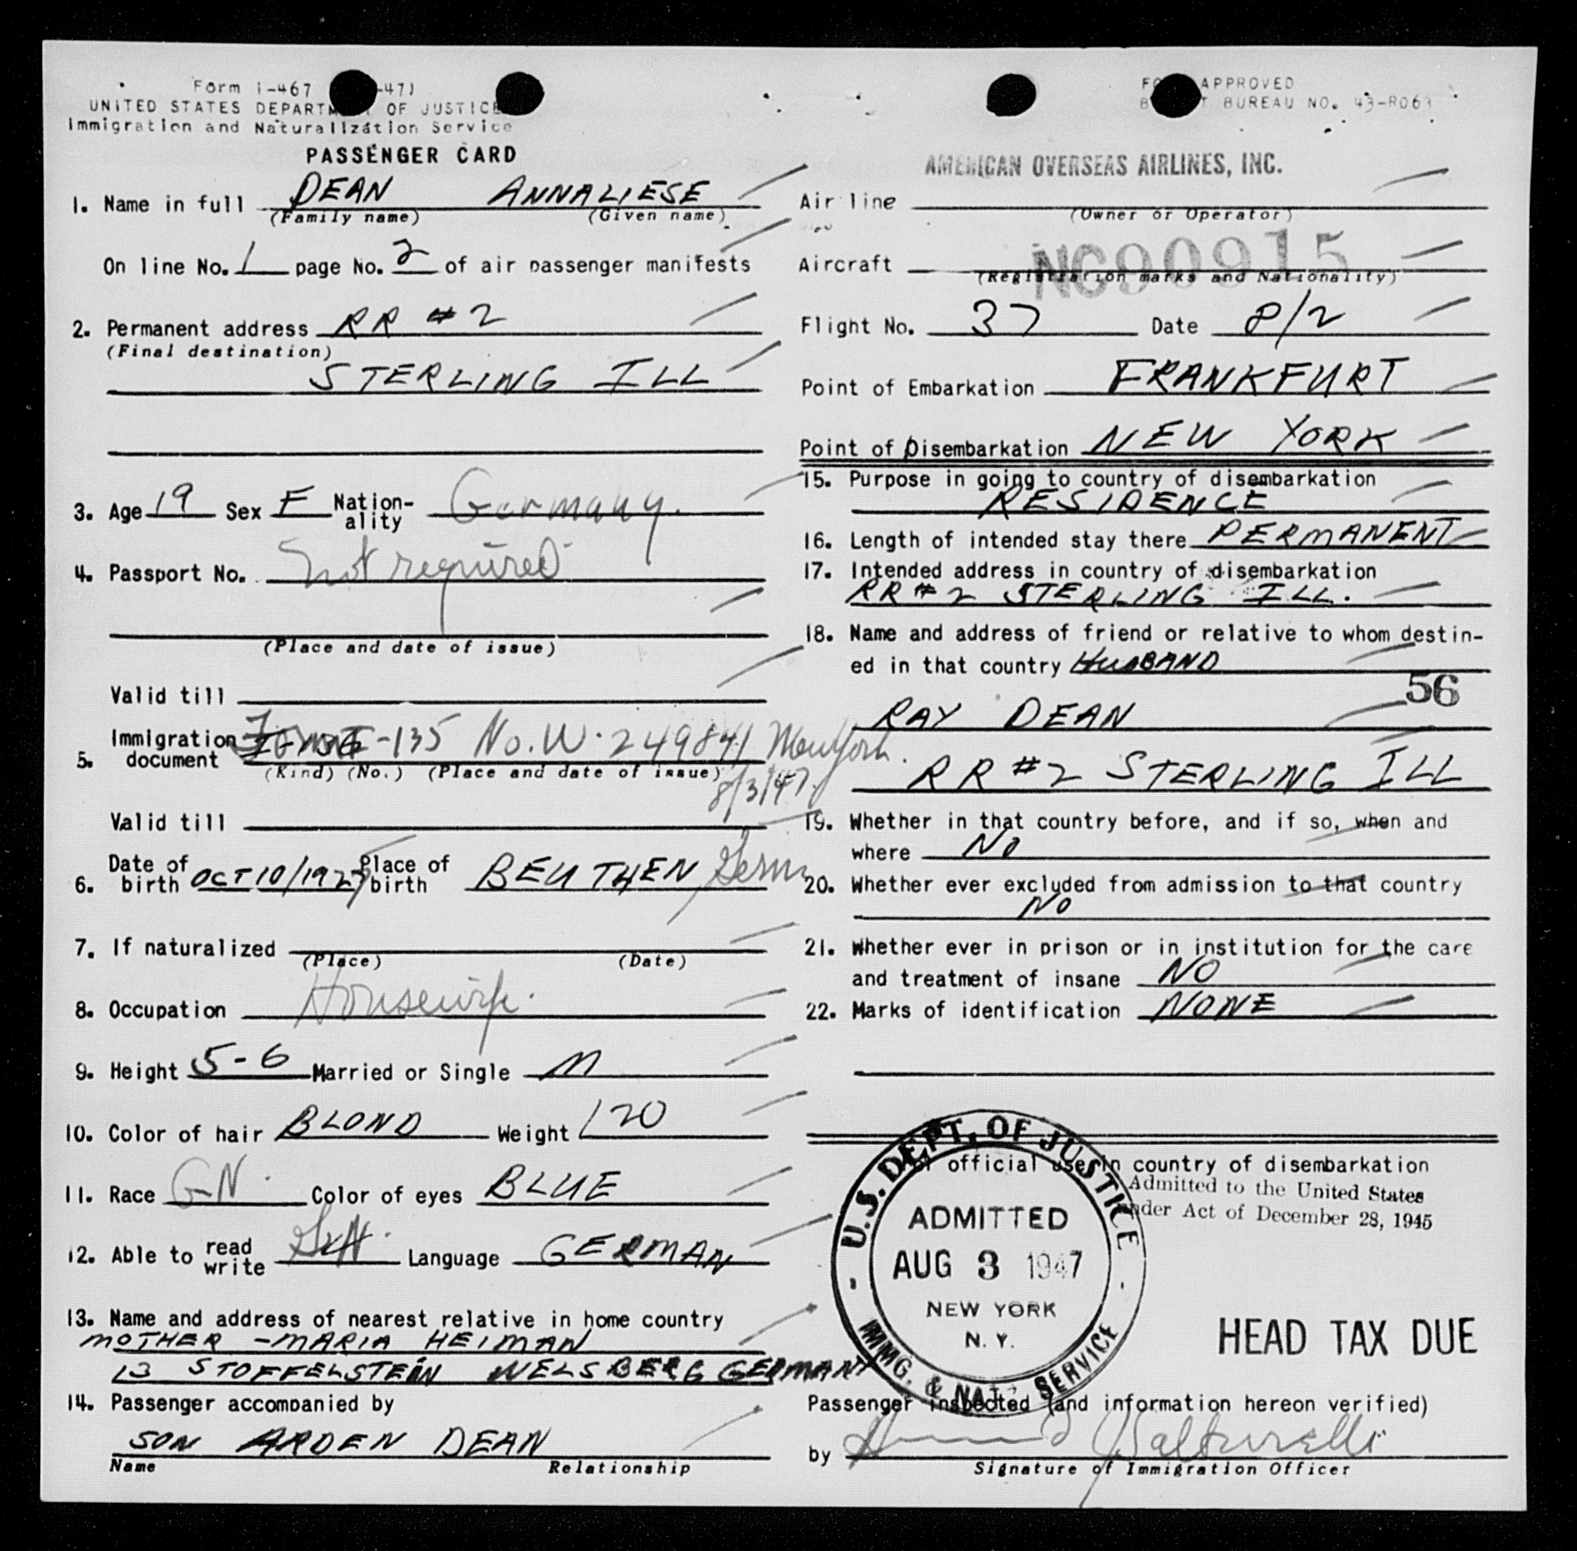 Form I-467 -47)
UNITED STATES DEPARTMENT OF JUSTICE
Immigration and Naturalization Service
PASSENGER CARD
1. Name in full DEAN ANNALIESE
(Family name) (Given name)
On line No. 1 page No. 2 of air passenger manifests
2. Permanent address RR #2
(Final destination)
STERLING ILL
3. Age 19 Sex F Nation-ality Germany.
4. Passport No. Not required
(Place and date of issue)
Valid till
5. Immigration document I-135 No. W-249841 New York.
(Kind) (No.) (Place and date of issue)
8/3/47.
Valid till
6. Date of birth OCT 10/1927 Place of birth BEUTHEN, Germ
7. If naturalized
(Place) (Date)
8. Occupation Housewife.
9. Height 5-6 Married or Single M
10. Color of hair BLOND Weight 120
11. Race GN Color of eyes BLUE
12. Able to read write Language GERMAN
13. Name and address of nearest relative in home country
MOTHER - MARIA HEIMAN
13 STOFFELSTEIN WELSBERG GERMANY
14. Passenger accompanied by
SON ARDEN DEAN
Name Relationship
FORM APPROVED
BUDGET BUREAU NO. 43-R063
AMERICAN OVERSEAS AIRLINES, INC.
Air line
(Owner or Operator)
Aircraft NC90915
(Registration marks and Nationality)
Flight No. 37 Date 8/2
Point of Embarkation FRANKFURT
Point of Disembarkation NEW YORK
15. Purpose in going to country of disembarkation
RESIDENCE
16. Length of intended stay there PERMANENT
17. Intended address in country of disembarkation
RR #2 STERLING ILL.
18. Name and address of friend or relative to whom destin-
ed in that country HUSBAND
56
RAY DEAN
RR #2 STERLING ILL
19. Whether in that country before, and if so, when and
where NO
20. Whether ever excluded from admission to that country
NO
21. Whether ever in prison or in institution for the care
and treatment of insane NO
22. Marks of identification NONE
For official use in country of disembarkation
Admitted to the United States
under Act of December 28, 1945
U.S. DEPT. OF JUSTICE
ADMITTED
AUG 3 1947
NEW YORK
N. Y.
IMMG. & NAT. SERVICE
HEAD TAX DUE
Passenger inspected (and information hereon verified)
by
Signature of Immigration Officer